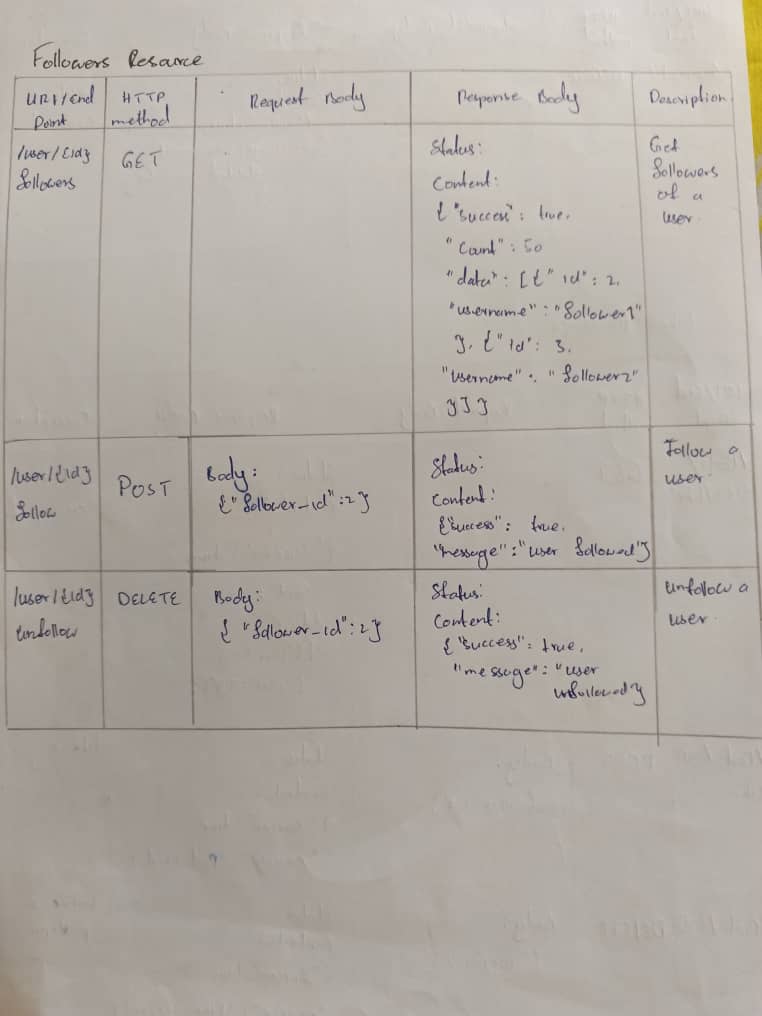 Followers Resource
URI/End
Point
HTTP
method
Request Body
Response Body
Description
/user/{id}
followers
GET
Status:
Content:
{ "success" : true,
"count" : 50
"data" : [ { "id" : 2,
"username" : "follower1"
}, { "id" : 3,
"username" : "follower2"
} ] }
Get
followers
of a
user.
/user/{id}
follow
POST
Body:
{ "follower_id" : 2 }
Status:
Content:
{ "success" : true,
"message" : "user followed" }
Follow a
user.
/user/{id}
unfollow
DELETE
Body:
{ "follower_id" : 2 }
Status:
Content:
{ "success" : true,
"message" : "user
unfollowed }
Unfollow a
user.